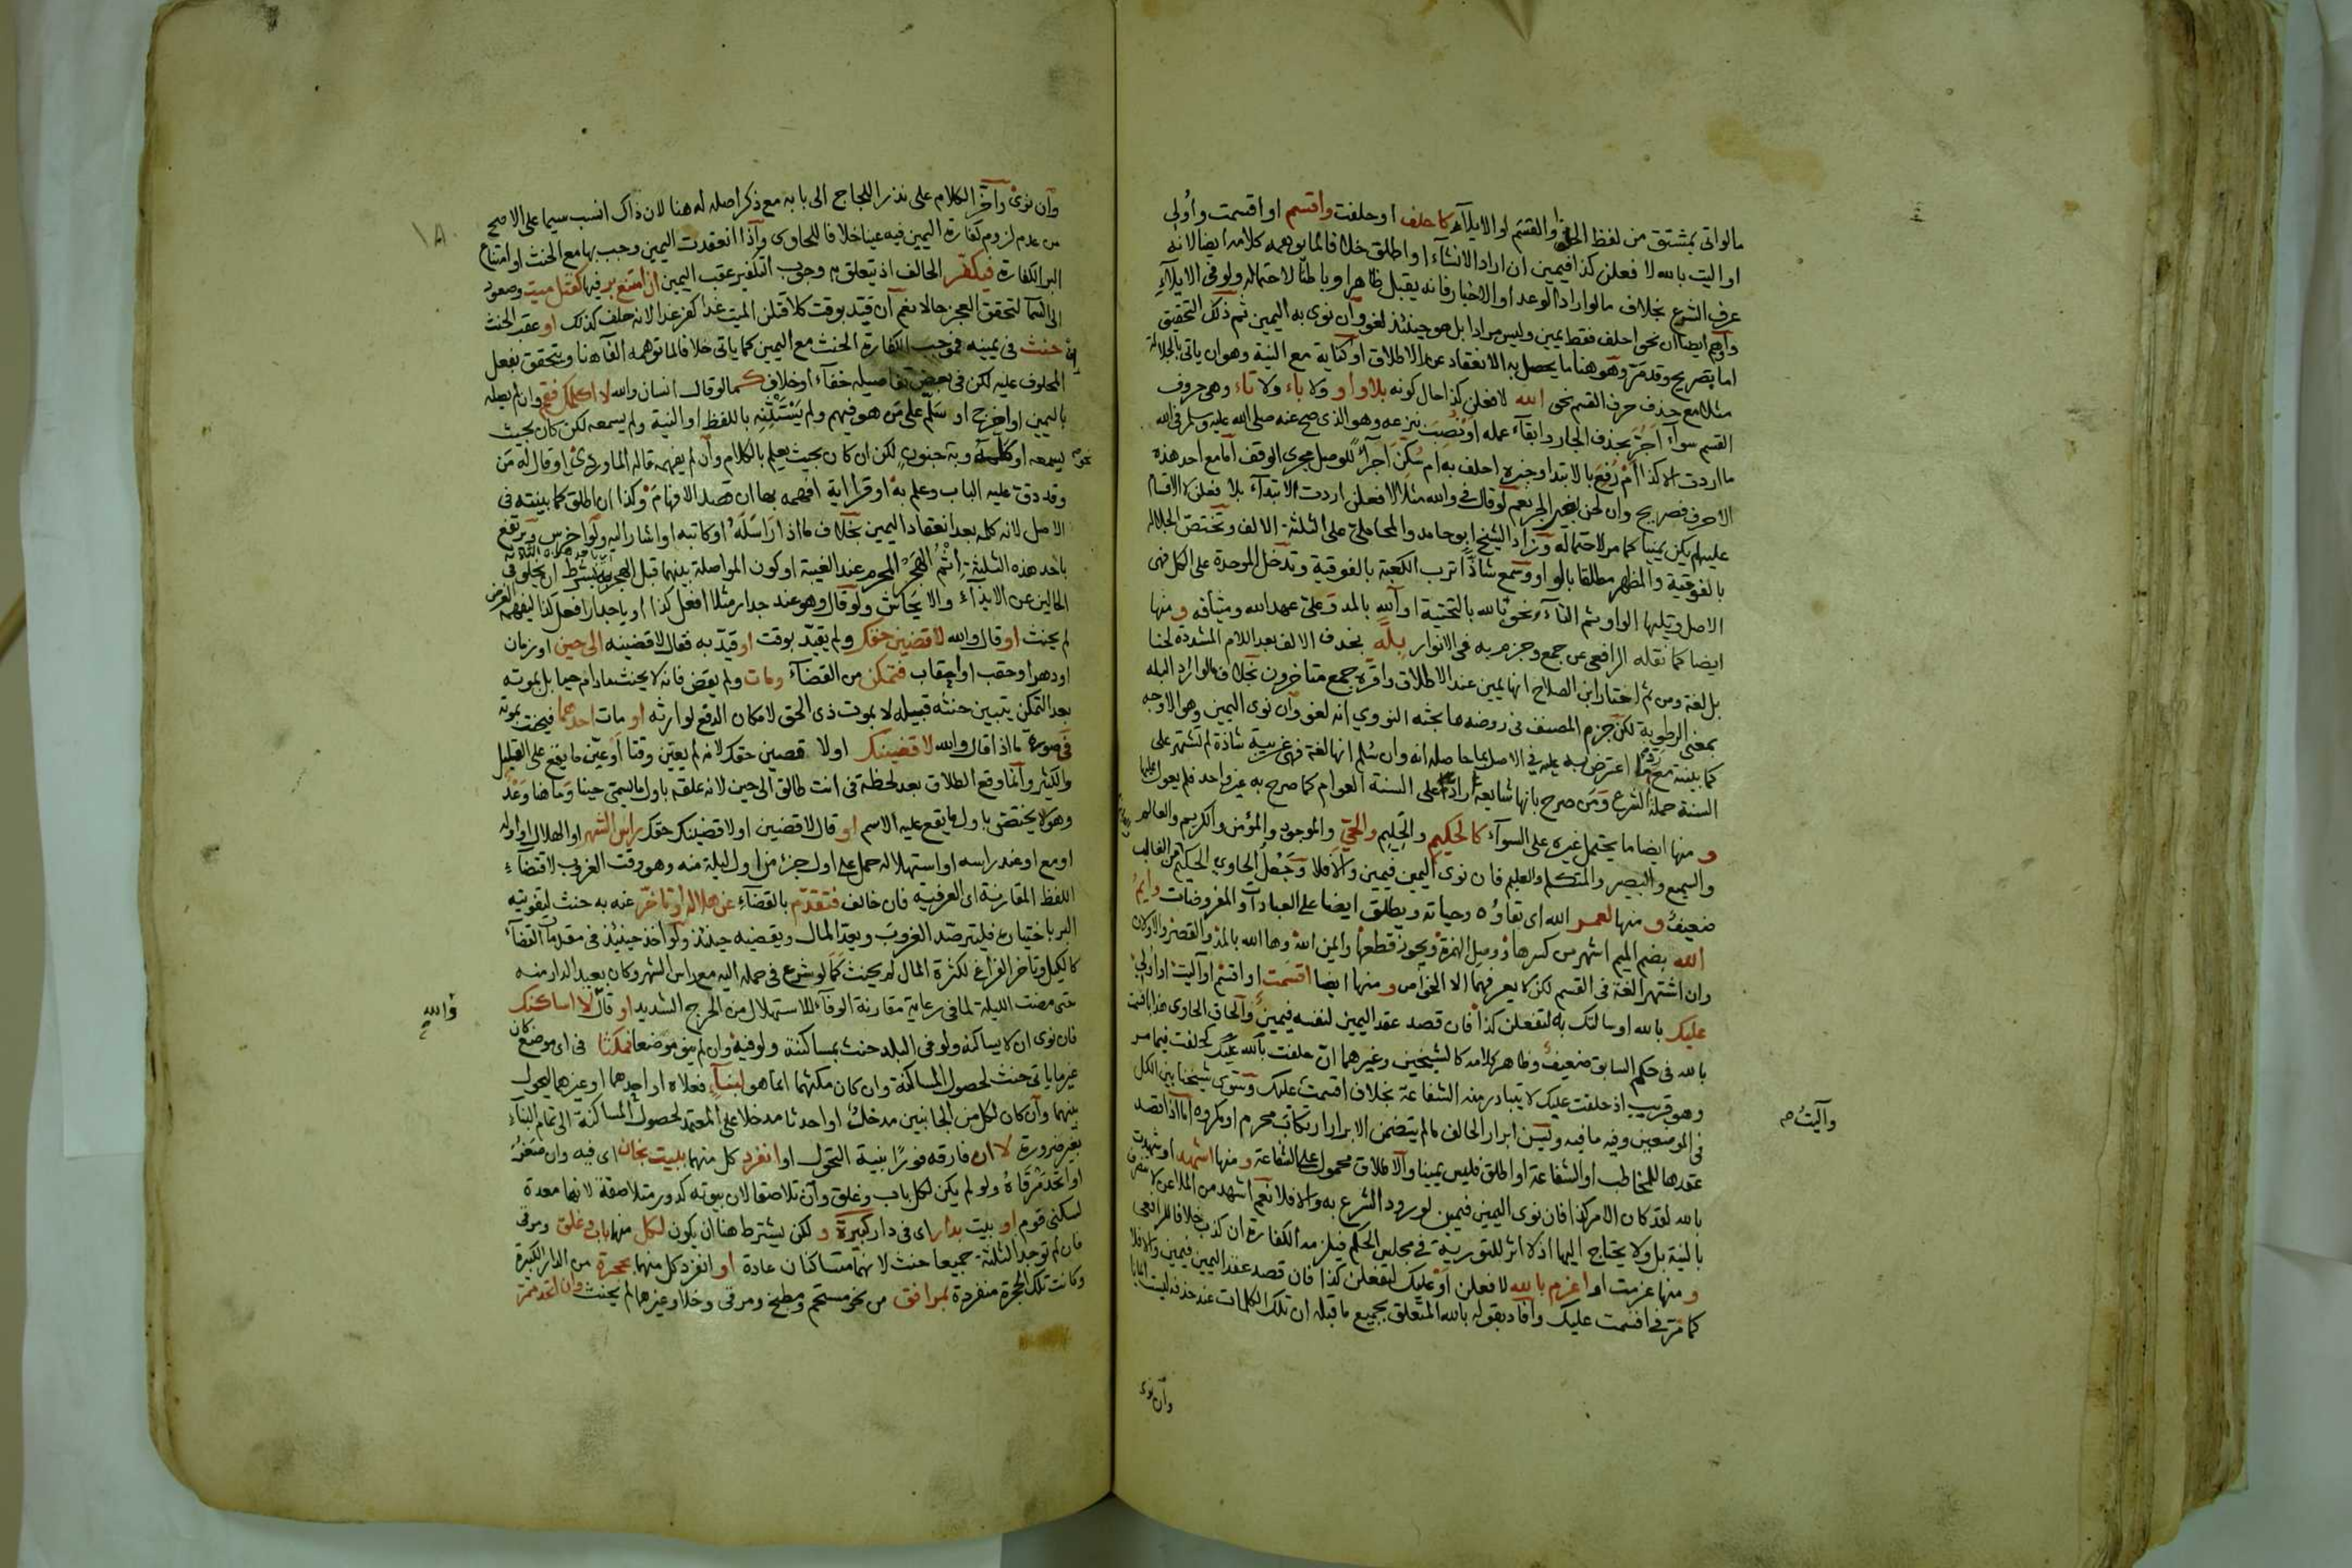 مالواتى بمشتق من لفظ الحلف والقسم او الايلاء كاحلف او حلفت واقسم او اقسمت واولى
او اليت بالله لا فعلن كذا فيمين ان اراد الانشاء او اطلق خلافا لما يوهمه كلامه ايضا لانه
عرف الشرع بخلاف مالو اراد الوعد او الاخبار فانه يقبل ظاهرا وباطنا لاحتماله ولو فى الايلاء
وافهم ايضا ان نحو احلف فقط يمين وليس مرادا بل هو حينئذ لغو وان نوى به اليمين ثم ذلك التحقيق
اما بصريح وقد مر وهو هنا ما يحصل به الانعقاد عند الاطلاق او كناية مع النية وهو ان ياتى بالجلالة
مثلا مع حذف حرف القسم نحو الله لا فعلن كذا حال كونه بلا واو ولا باء ولا تاء وهى حروف
القسم سواء اجر بحذف الجار وابقاء عمله او نصب بنزعه وهو الذى صح عنه صلى الله عليه وسلم فى الله
ما اردت الا كذا ام رفع بالابتدا وخبره احلف به ام سكن اجراء للوصل مجرى الوقف اما مع احد هذه
الاحرف فصريح وان لحن بغير الجر نعم لو قال فى والله مثلا لا فعلن اردت الابتداء بلا فعلن لا الاقسام
عليه لم يكن يمينا كما مر لاحتماله وزاد الشيخ ابو حامد والمحاملى على الثلثة الالف وتختص الجلالة
بالفوقية والمظهر مطلقا بالواو وسمع شاذا ترب الكعبة بالفوقية وتدخل الموحدة على الكل فهى
الاصل وتليها الواو ثم التاء ونحو يالله بالتحتية او آلله بالمد وعلى عهد الله وميثاقه ومنها
ايضا كما نقله الرافعى عن جمع وجزم به فى الانوار بله بحذف الالف بعد اللام المشددة لحنا
بل لغة ومن ثم اختار ابن الصلاح انها يمين عند الاطلاق واقره جمع متاخرون بخلاف مالو اراد البله
بمعنى الرطوبة لكن جزم المصنف فى روضه ما بحثه النووي انه لغو وان نوى اليمين وهو الاوجه
كما بينته مع رد ما اعترض به عليه فى الاصل بما حاصله انه وان سلم انها لغة فهى غريبة شاذة لم تشتهر على
السنة حملة الشرع ومن صرح بانها شايعة اراد على السنة العوام كما صرح به غير واحد فلم يعول عليها
و منها ايضا ما يحتمل غيره على السواء كالحكيم والحليم والحى والموجود والمؤمن والكريم والعالم
والسميع والبصير والمتكلم والعليم فان نوى اليمين فيمين والا فلا وجعل الحاوي الحكيم من الغالب
ضعيف و منها لعمر الله اى بقاؤه وحياته ويطلق ايضا على العبادات والمفروضات وايم
الله بضم الميم اشهر من كسرها ووصل الهمزة ويجوز قطعها وايمن الله وها الله بالمد والقصر والاولان
وان اشتهرا لغة فى القسم لكن لا يعرفهما الا الخواص ومنها ايضا اقسمت او اقسم او آليت او اولى
عليك بالله او سالتك به لتفعلن كذا فان قصد عقد اليمين لنفسه فيمين والحاق الحاوى هذا باقسمت
بالله فى حكم السابق ضعيف وظاهر كلامه كالشيخين وغيرهما ان حلفت بالله عليك كحلفت فيما مر
وهو قريب اذ حلفت عليك لا يتبادر منه الشفاعة بخلاف اقسمت عليك وسوى شيخنا بين الكل
فى الموضعين وفيه ما فيه ويسن ابرار الحالف مالم يتضمن الابرار ارتكاب محرم او مكروه اما اذا قصد
عقدها للمخاطب او الشفاعة او اطلق فليس يمينا والاطلاق محمول على الشفاعة ومنها اشهد او شهدت
بالله لقد كان الامر كذا فان نوى اليمين فيمين لورود الشرع به والا فلا نعم اشهد من الملاعن لا
بالنية بل ولا يحتاج اليها اذ لا اثر للتورية فى مجلس الحكم فيلزمه الكفارة ان كذب خلافا للرافعى
و منها عزمت او اعزم بالله لا فعلن او عليك لتفعلن كذا فان قصد عقد اليمين فيمين والا فلا
كما مر فى اقسمت عليك وافاد بقوله بالله المتعلق بجميع ما قبله ان تلك الكلمات عند حذفه ليست ايمانا
وآليت صح
وان نوى
وان نوى واخر الكلام على نذر اللجاج الى بابه مع ذكر اصله له هنا لان ذاك انسب سيما على الاصح
من عدم لزوم كفارة اليمين فيه عينا خلافا للحاوى واذا انعقدت اليمين وجب بها مع الحنث او امتناع
البر الكفارة فيكفر الحالف اذ يتعلق به وجوب التكفير عقب اليمين ان امتنع بر فيها كقتل ميت وصعود
الى السما لتحقق العجز حالا نعم ان قيد بوقت كلاقتلن الميت غدا كفر غدا لانه حلف كذلك او عقب الحنث
حنث فى يمينه فموجب الكفارة الحنث مع اليمين كما ياتى خلافا لما توهمه الفاء هنا ويتحقق بفعل
المحلوف عليه لكن فى بعض تفاصيله خفاء او خلاف كما لو قال انسان والله لا اكلمك فقم وان لم يصله
باليمين او اخرج او سلم على من هو فيهم ولم يستثنه باللفظ او النية ولم يسمعه لكن كان بحيث
يسمعه او كلمه وبه جنون لكن ان كان بحيث يعلم بالكلام وان لم يفهمه قاله الماوردى او قال له من
وقد دق عليه الباب وعلم به او قرا اية افهمه بها ان قصد الافهام وكذا ان اطلق كما بينته فى
الاصل لانه كلمه بعد انعقاد اليمين بخلاف ما اذا راسله او كاتبه او اشار اليه ولو اخرس ويرتفع
باحد هذه الثلثة اثم الهجر المحرم عند الغيبة او كون المواصلة بينهما قبل الهجر بشرط ان يخلو فى
الحالين عن الايذاء والايحاش ولو قال وهو عند جدار مثلا افعل كذا او يا جدار افعل كذا ليفهمه الغرض
لم يحنث او قال والله لاقضين حقك ولم يقيد بوقت او قيد به فقال لاقضينه الى حين او زمان
او دهر او حقب او احقاب فتمكن من القضاء ومات ولم يقض فانه لا يحنث مادام حيا بل بموته
بعد التمكن يتبين حنثه قبيله لا بموت ذى الحق لامكان الدفع لوارثه او مات احدهما فيحنث بموته
فى صورة ما اذا قال والله لاقضينك او لاقضين حقك لانه لم يعين وقتا او عين ما يقع على القليل
والكثير وانما وقع الطلاق بعد لحظة فى انت طالق الى حين لانه علقه باول ما يسمى حينا وما هنا وعد
وهو لا يختص باول ما يقع عليه الاسم او قال لاقضين او لاقضينك حقك راس الشهر او الهلال او اوله
او مع او عند راسه او استهلاله حمل على اول جزء من اول ليلة منه وهو وقت الغروب لاقتضاء
اللفظ المقارنة اى العرفية فان خالف فتقدم بالقضاء عن هلاله او تاخر عنه به حنث لتفويته
البر باختياره فليترصد الغروب ويعد المال ويقضيه حينئذ ولو اخذ حينئذ فى مقدمات القضاء
كالكيل وتاخر الفراغ لكثرة المال لم يحنث كما لو شرع فى حمله اليه مع راس الشهر وكان بعيد الدار منه
حتى مضت الليلة لما فى رعاية مقارنة الوفاء للاستهلال من الحرج الشديد او قال لا اساكنك
فان نوى ان لا يساكنه ولو فى البلد حنث بمساكنته ولو فيه وان لم ينو موضعا فمكثا فى اى موضع كان
غير ما ياتى حنث لحصول المساكنة وان كان مكثهما انما هو لبناء فعلاه او احدهما او غيرهما ليحول
بينهما وان كان لكل من الجانبين مدخل او احدثا مدخلا على المعتمد لحصول المساكنة الى تمام البناء
بغير ضرورة لا ان فارقه فورا بنية التحول او انفرد كل منهما ببيت بخان اى فيه وان صغر
او اتحد مرقاه ولو لم يكن لكل باب وغلق وان تلاصقا لان بيوته كدور متلاصقة لانها معدة
لسكنى قوم او بيت بدار اى فى دار كبيرة و لكن يشترط هنا ان يكون لكل منها باب وغلق ومرقى
فان لم توجد الثلثة جميعا حنث لانهما متساكنان عادة او انفرد كل منهما بحجرة من الدار الكبيرة
وكانت تلك الحجرة منفردة بمرافق من نحو مستحم ومطبخ ومرقى وخلا وغيرهما لم يحنث وان اتحد ممر
والله